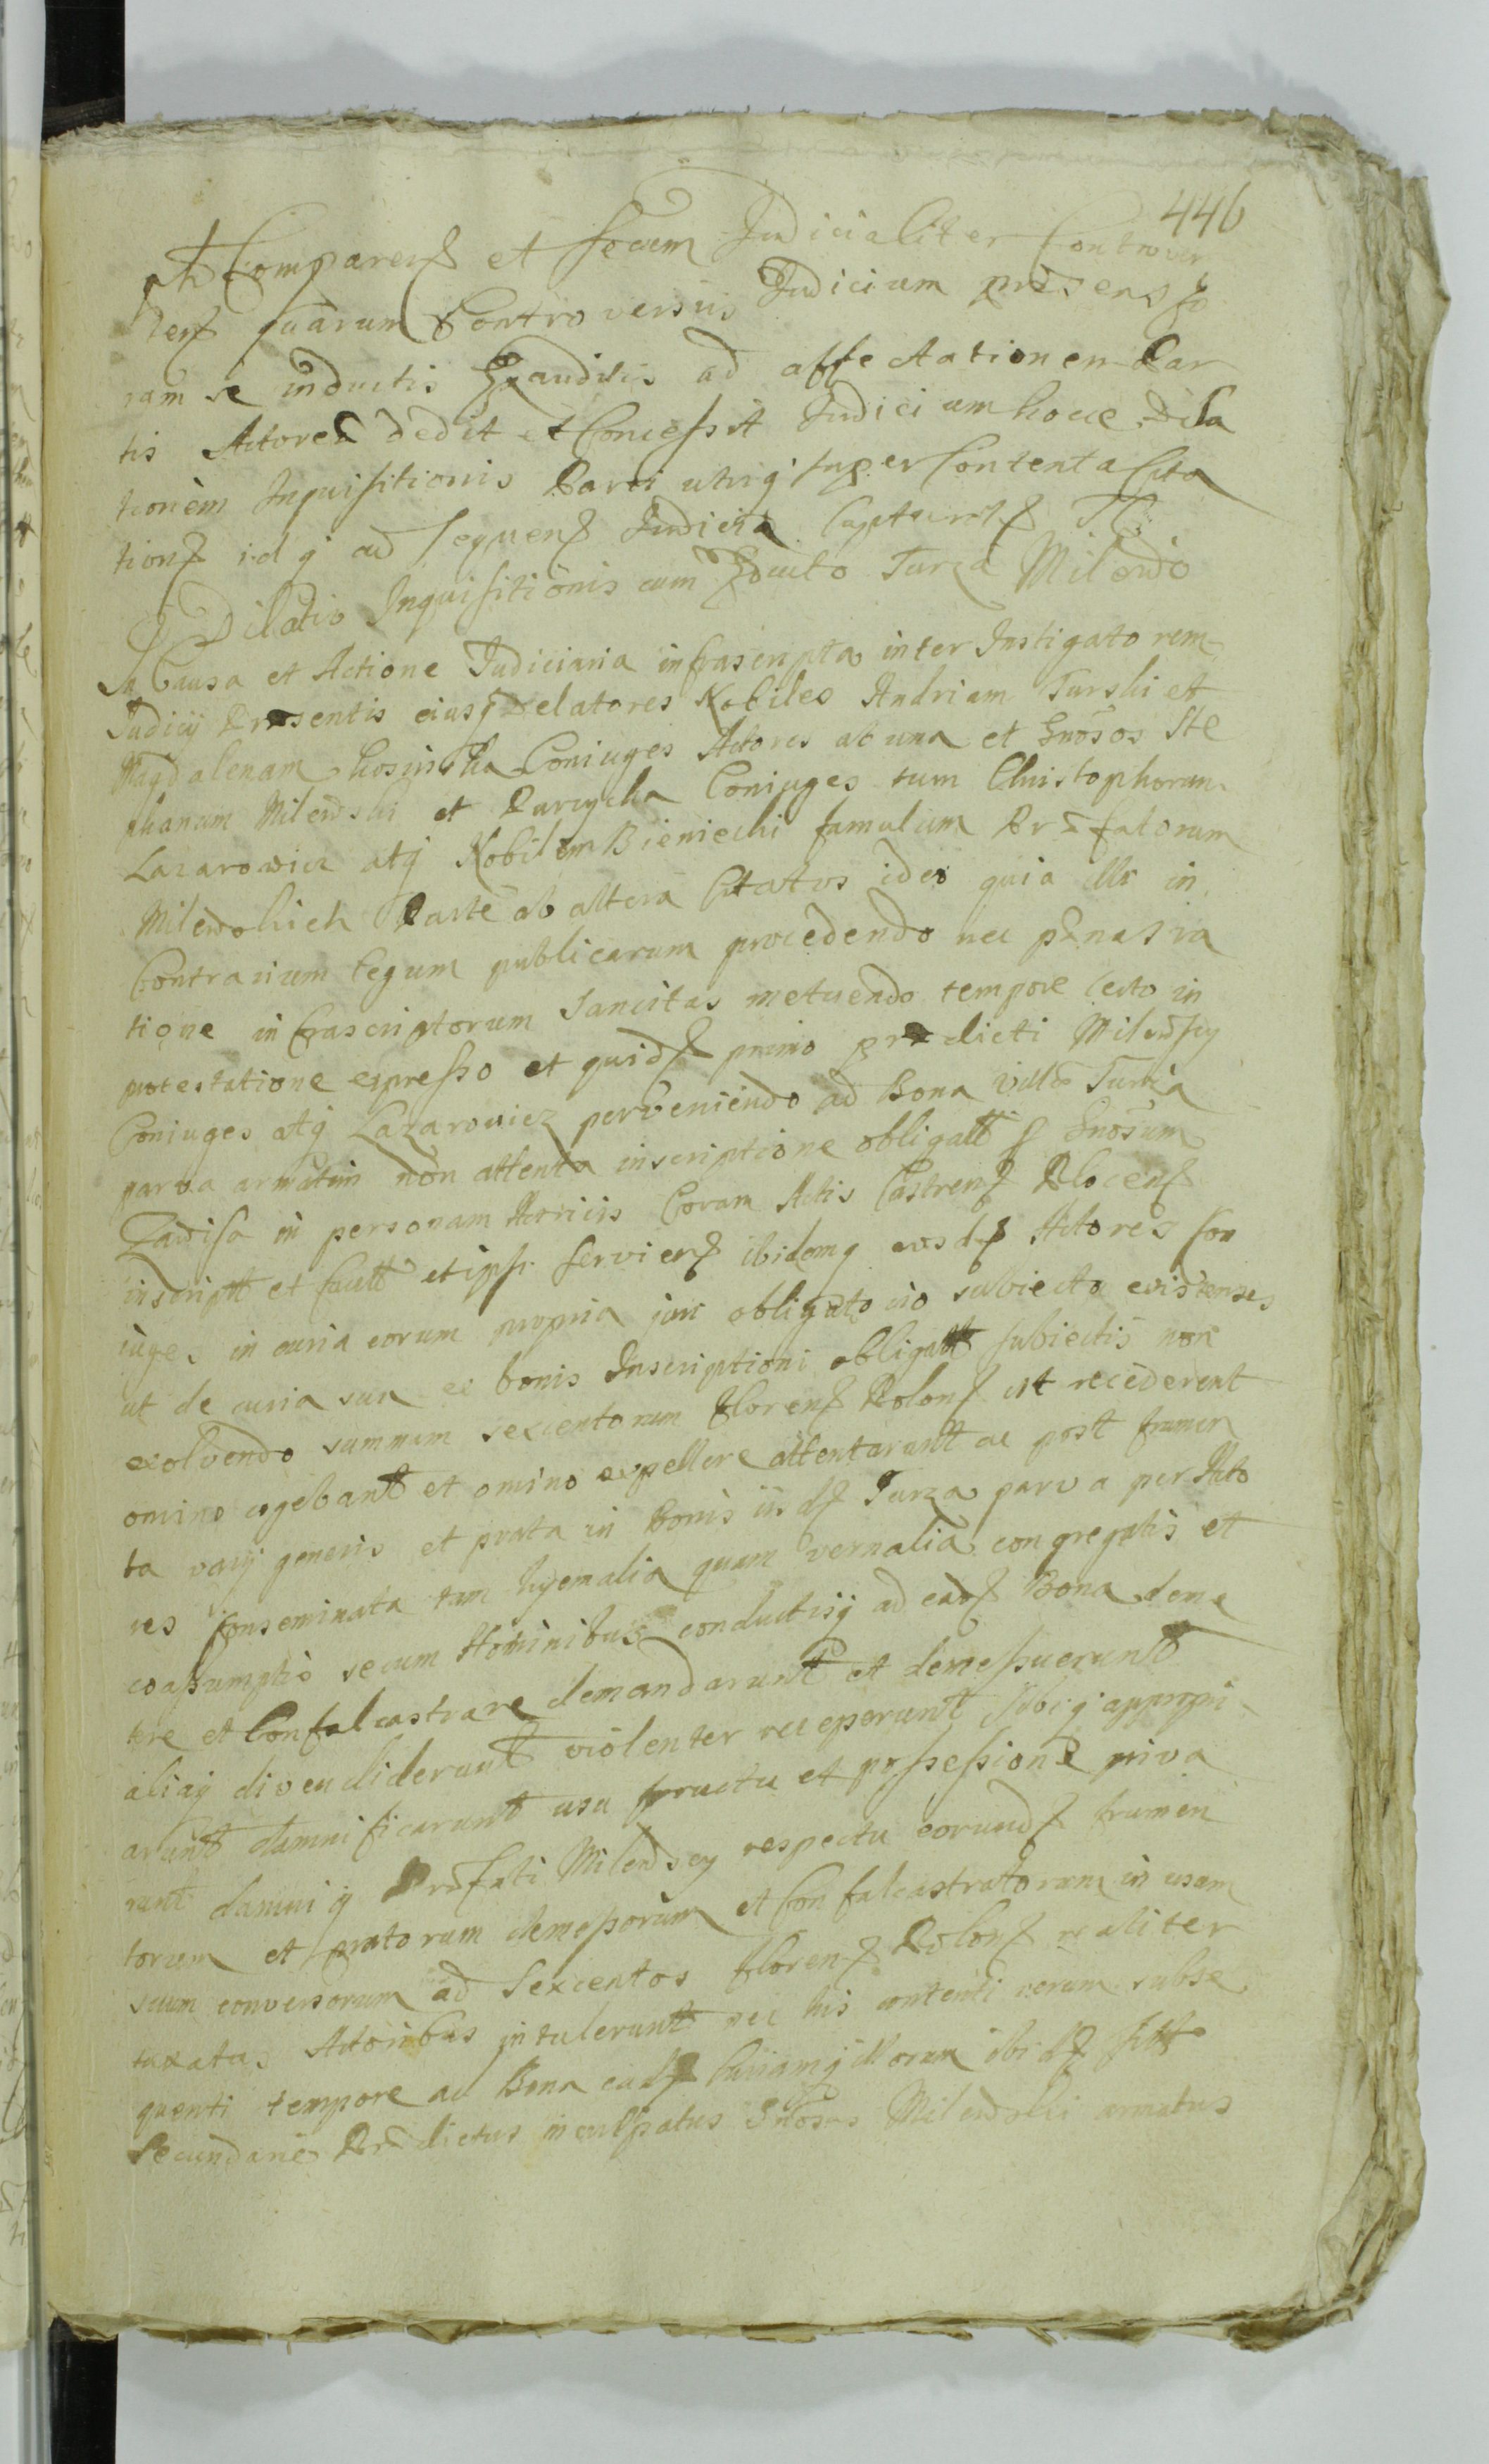 446
Comparens et secum Judicialiter Controver
tens quarum Controversiis Judicium presens co
ram se inductis Exauditis ad affectationem Par
tis Actoreæ dedit et Concessit Judicium hocce Dila
tionem Inquisitionis Parti utriq super Contenta Cita
tions idq ad sequens Judicia Capturat
Dilatio Inquisitionis cum Educto Turza Milewo
In Causa et Actione Judiciaria infrascripta inter Instigatorem
Judicij Præsentis eiusq delatores Nobiles Andream Turski et
Magdalenam Kosinska Coniuges Actores ab una et Gnosos Ste
phanum Milewski et Parczka Coniuges tum Christophorum
Lazarowicz atq Nobilem Bieniecki famulum Præfatorum
Milewskich Parte ab altera Citatos ideo quia illi in
Contrarium legum publicarum procedendo nec pænas ra
tione infrascriptorum sancitas metuendo tempore certo in
protestatione expresso et quid primo prædicti Milewscy
Coniuges atq Lazarowicz perveniendo ad Bona villæ Turza
parva armatim non attenta inscriptione obligatt p Gnosum
Zawisa in personam Actricis Coram Actis Castrens Plocens
inscriptt et factt et ipsi serviens ibidemq eosd Actores Con
iuges in curia eorum propria juri obligatorio subiecta existentes
ut de curia sua ac bonis Inscriptioni obligatt subiectis non
exolvendo summam sexcentorum florens Polon ut recederent
omino cogebant et omino expellere attentarunt ac post frumen
ta varij generis et prata in Bonis iisd Turza parva per Acto
res Conseminata tam hyemalia quam vernalia congregatis et
coassumptis secum Hominibus conductisq ad ead Bona deme
tere et Confalcastrare demandarunt et demessuerunt
aliaq divendiderunt violenter receperunt sibiq appropri
arunt damnificarunt usu fructu et possessione priva
runt damniq Præfati Milewscy respectu eorund frumen
torum et pratorum demessorum et Confalcastratorum in usum
suum conversorum ad Sexcentos florens Polon realiter
taxatas Actoribus intulerunt nec his contenti verum subse
quenti tempore ad Bona ead Curiamq illorum ibid sitt
Secundarie Prædictus inculpatus Gnosus Milewski armatus